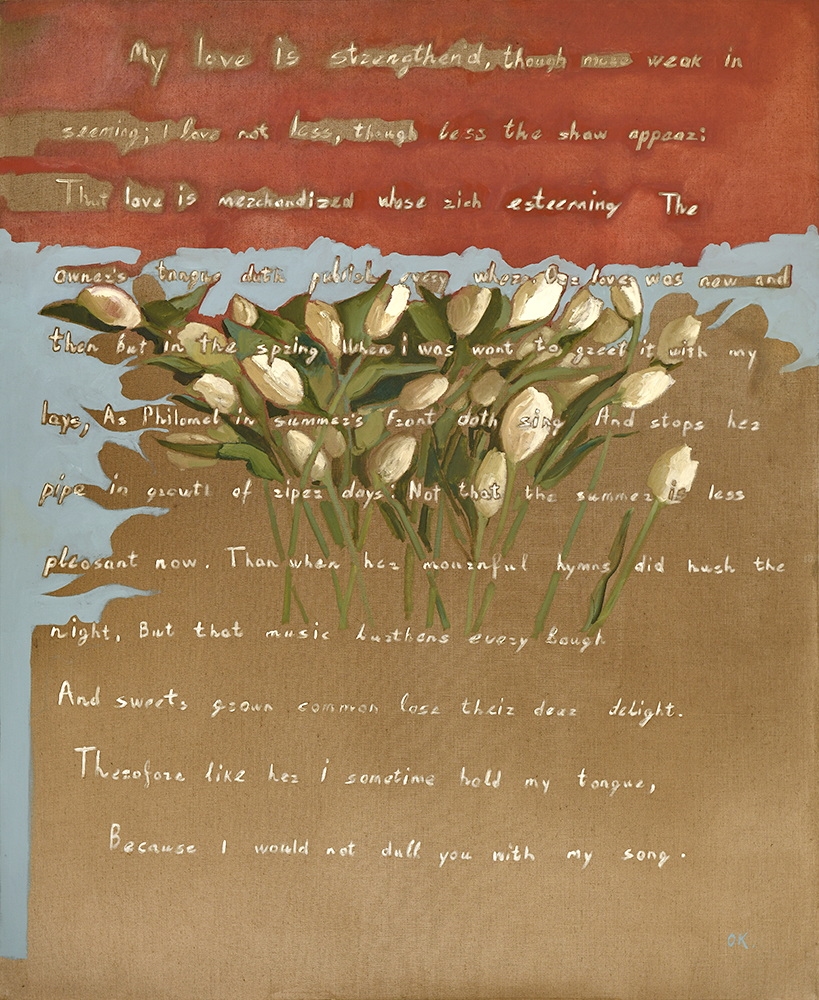 My love is strengthend, though more weak in
seeming; I love not less, though less the shaw appear:
That love is merchandized whose rich esteeming The
owner's tongue doth publish every where. Our love was new and
then but in the spring When i was wont to greet it with my
lays, As Philomel in summer's Front doth sing And stops her
pipe in growth of riper days: Not that the summer is less
pleasant now. Than when her mournful hymns did hush the
night, But that music burthens every Bough
And sweets grown common lose their dear delight.
Therefore like her i sometime hold my tongue,
Because I would not dull you with my song.
OK